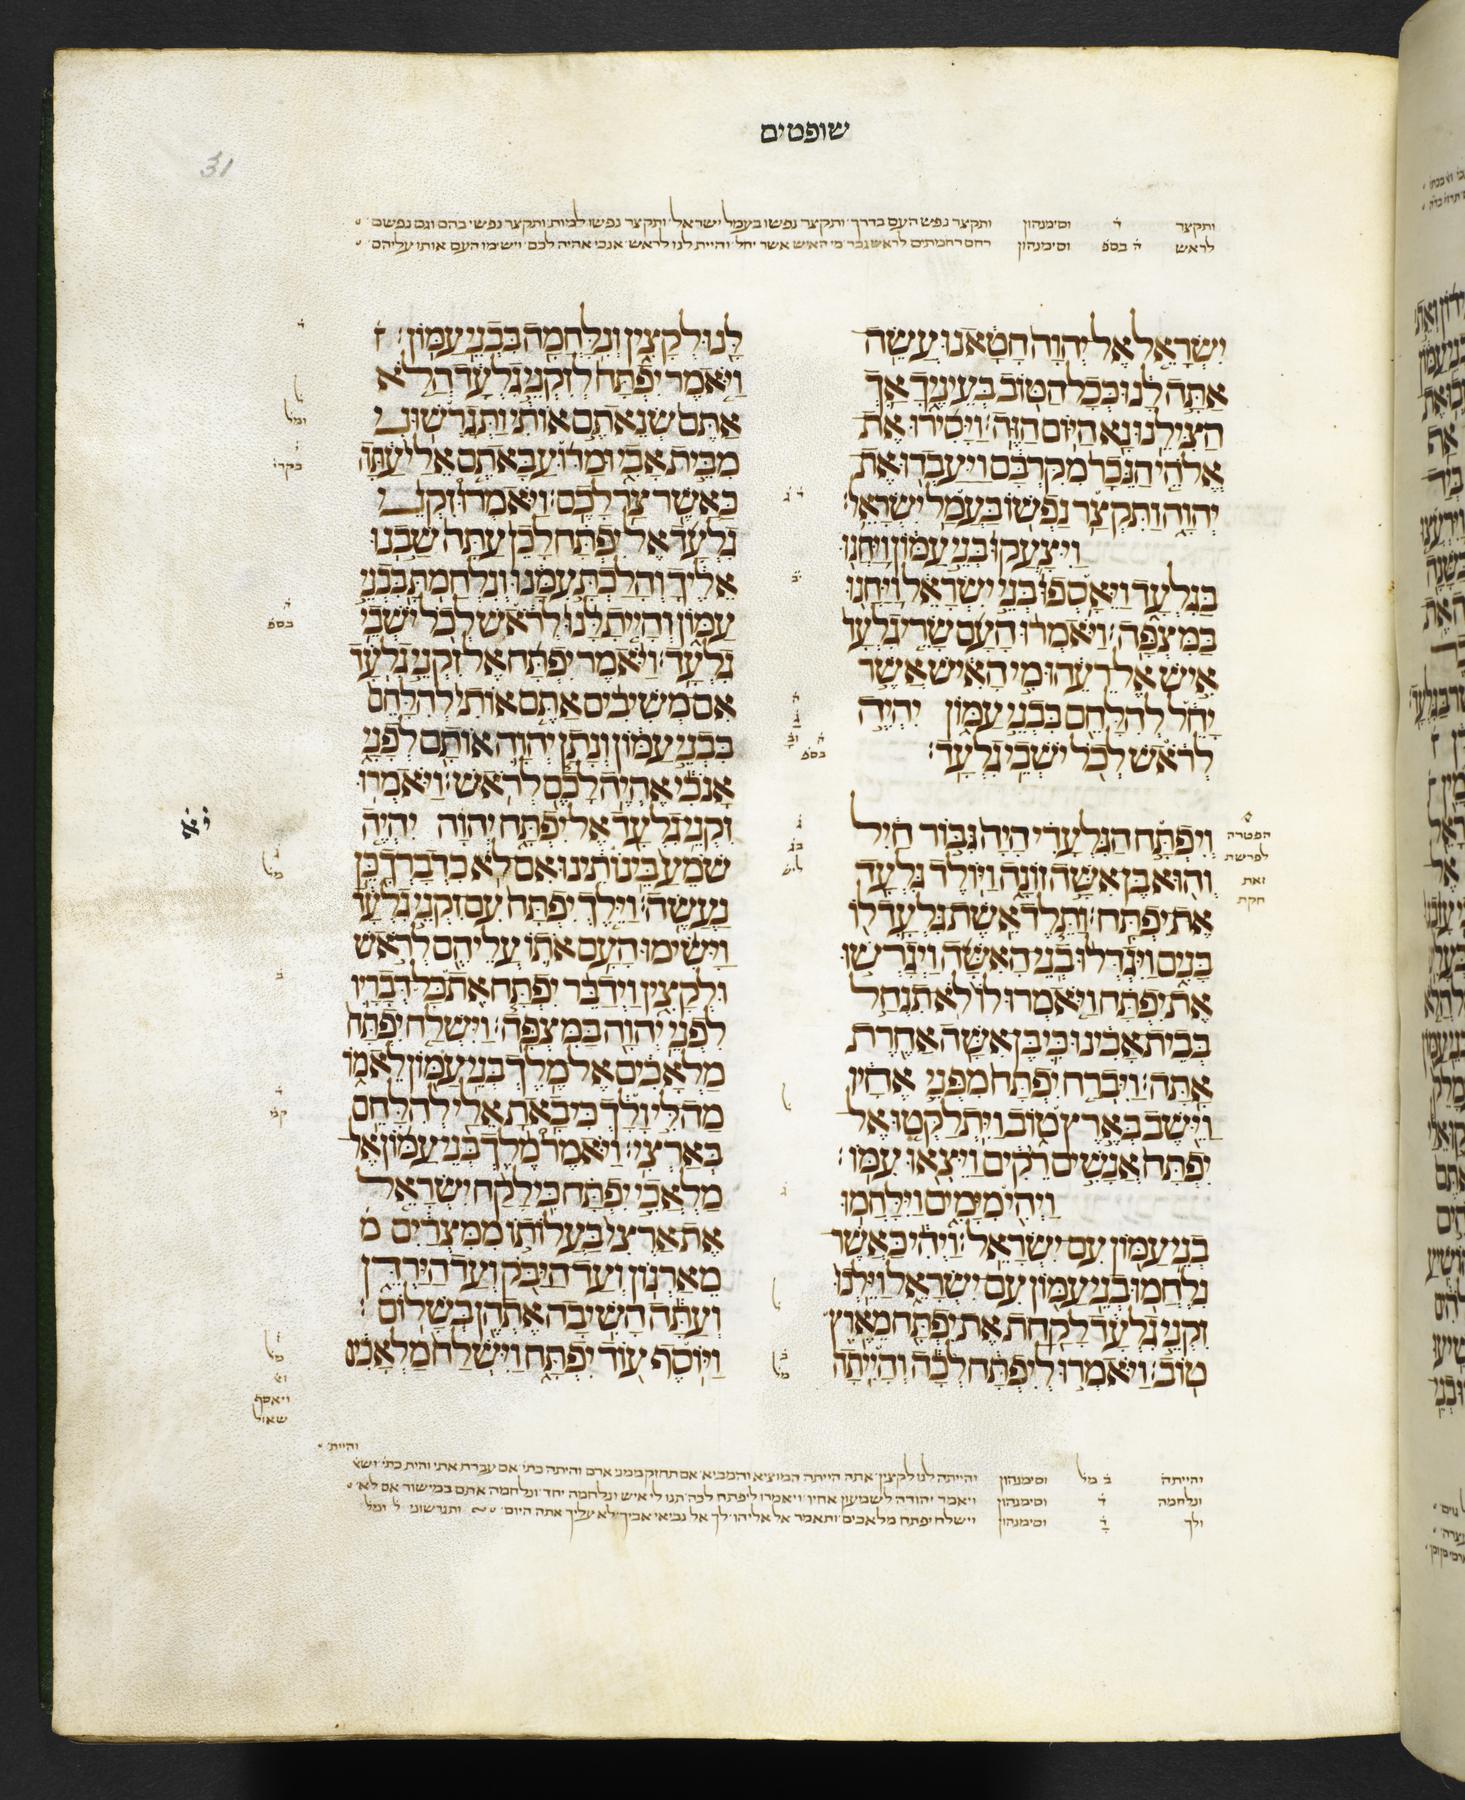 שופטים
31
ותקצר ד וסימנהון ותקצר נפש העם בדרך ותקצר נפשו בעמל ישראל ותקצר נפשו למות ותקצר נפשי בהם וגם נפשם
לראש ה בספ וסימנהון רחם רחמתים לראש גבר מי האיש אשר יחל והיית לנו לראש אנכי אהיה לכם וישימו העם אותו עליהם
יִשְׂרָאֵל אֶל יְהוָה חָטָאנוּ עֲשֵׂה
אַתָּה לָנוּ כְּכָל הַטּוֹב בְּעֵינֶיךָ אַךְ
הַצִּילֵנוּ נָא הַיּוֹם הַזֶּה׃ וַיָּסִירוּ אֶת
אֱלֹהֵי הַנֵּכָר מִקִּרְבָּם וַיַּעַבְדוּ אֶת
יְהוָה וַתִּקְצַר נַפְשׁוֹ בַּעֲמַל יִשְׂרָאֵל׃
וַיִּצָּעֲקוּ בְּנֵי עַמּוֹן וַיַּחֲנוּ
בַּגִּלְעָד וַיֵּאָסְפוּ בְּנֵי יִשְׂרָאֵל וַיַּחֲנוּ
בַּמִּצְפָּה׃ וַיֹּאמְרוּ הָעָם שָׂרֵי גִלְעָד
אִישׁ אֶל רֵעֵהוּ מִי הָאִישׁ אֲשֶׁר
יָחֵל לְהִלָּחֵם בִּבְנֵי עַמּוֹן יִהְיֶה
לְרֹאשׁ לְכֹל יֹשְׁבֵי גִלְעָד׃
הפטרה
לפרשת
זאת
חקת
וְיִפְתָּח הַגִּלְעָדִי הָיָה גִּבּוֹר חַיִל
וְהוּא בֶּן אִשָּׁה זוֹנָה וַיּוֹלֶד גִּלְעָד
אֶת יִפְתָּח׃ וַתֵּלֶד אֵשֶׁת גִּלְעָד לוֹ
בָּנִים וַיִּגְדְּלוּ בְנֵי הָאִשָּׁה וַיְגָרְשׁוּ
אֶת יִפְתָּח וַיֹּאמְרוּ לוֹ לֹא תִנְחַל
בְּבֵית אָבִינוּ כִּי בֶּן אִשָּׁה אַחֶרֶת
אָתָּה׃ וַיִּבְרַח יִפְתָּח מִפְּנֵי אֶחָיו
וַיֵּשֶׁב בְּאֶרֶץ טוֹב וַיִּתְלַקְּטוּ אֶל
יִפְתָּח אֲנָשִׁים רֵקִים וַיֵּצְאוּ עִמּוֹ׃
וַיְהִי מִיָּמִים וַיִּלָּחֲמוּ
בְנֵי עַמּוֹן עִם יִשְׂרָאֵל׃ וַיְהִי כַּאֲשֶׁר
נִלְחֲמוּ בְנֵי עַמּוֹן עִם יִשְׂרָאֵל וַיֵּלְכוּ
זִקְנֵי גִלְעָד לָקַחַת אֶת יִפְתָּח מֵאֶרֶץ
טוֹב׃ וַיֹּאמְרוּ לְיִפְתָּח לְכָה וְהָיִיתָה
לָּנוּ לְקָצִין וְנִלָּחֲמָה בִּבְנֵי עַמּוֹן׃
וַיֹּאמֶר יִפְתָּח לְזִקְנֵי גִלְעָד הֲלֹא
אַתֶּם שְׂנֵאתֶם אוֹתִי וַתְּגָרְשׁוּנִי
מִבֵּית אָבִי וּמַדּוּעַ בָּאתֶם אֵלַי עַתָּה
כַּאֲשֶׁר צַר לָכֶם׃ וַיֹּאמְרוּ זִקְנֵי
גִלְעָד אֶל יִפְתָּח לָכֵן עַתָּה שַׁבְנוּ
אֵלֶיךָ וְהָלַכְתָּ עִמָּנוּ וְנִלְחַמְתָּ בִּבְנֵי
עַמּוֹן וְהָיִיתָ לָּנוּ לְרֹאשׁ לְכֹל יֹשְׁבֵי
גִלְעָד׃ וַיֹּאמֶר יִפְתָּח אֶל זִקְנֵי גִלְעָד
אִם מְשִׁיבִים אַתֶּם אוֹתִי לְהִלָּחֵם
בִּבְנֵי עַמּוֹן וְנָתַן יְהוָה אוֹתָם לְפָנָי
אָנֹכִי אֶהְיֶה לָכֶם לְרֹאשׁ׃ וַיֹּאמְרוּ
זִקְנֵי גִלְעָד אֶל יִפְתָּח יְהוָה יִהְיֶה
שֹׁמֵעַ בֵּינוֹתֵינוּ אִם לֹא כִדְבָרְךָ כֵּן
נַעֲשֶׂה׃ וַיֵּלֶךְ יִפְתָּח עִם זִקְנֵי גִלְעָד
וַיָּשִׂימוּ הָעָם אֹתוֹ עֲלֵיהֶם לְרֹאשׁ
וּלְקָצִין וַיְדַבֵּר יִפְתָּח אֶת כָּל דְּבָרָיו
לִפְנֵי יְהוָה בַּמִּצְפָּה׃ וַיִּשְׁלַח יִפְתָּח
מַלְאָכִים אֶל מֶלֶךְ בְּנֵי עַמּוֹן לֵאמֹר
מַה לִּי וָלָךְ כִּי בָאתָ אֵלַי לְהִלָּחֵם
בְּאַרְצִי׃ וַיֹּאמֶר מֶלֶךְ בְּנֵי עַמּוֹן אֶל
מַלְאֲכֵי יִפְתָּח כִּי לָקַח יִשְׂרָאֵל
אֶת אַרְצִי בַּעֲלוֹתוֹ מִמִּצְרַיִם מ
מֵאַרְנוֹן וְעַד הַיַּבֹּק וְעַד הַיַּרְדֵּן
וְעַתָּה הָשִׁיבָה אֶתְהֶן בְּשָׁלוֹם׃
וַיּוֹסֶף עוֹד יִפְתָּח וַיִּשְׁלַח מַלְאָכִים
יא
ויאסף
שאול
והיית
והייתה ב מל וסימנהון והייתה לנו לקצין אתה הייתה המוציא והמביא אם תחזק ממני ארם והיתה כתי אם עברת אתי והית כתי
ונלחמה ד וסימנהון ויאמר יהודה לשמעון אחיו ויאמרו ליפתח לכה תנו לי איש ונלחמה יחד ונלחמה אתם במישור אם לא
ולך ד וסימנהון וישלח יפתח מלאכים ותאמר אל אליהו לך אל נביאי אביך לא עליך אתה היום ותגרשוני ל ומל